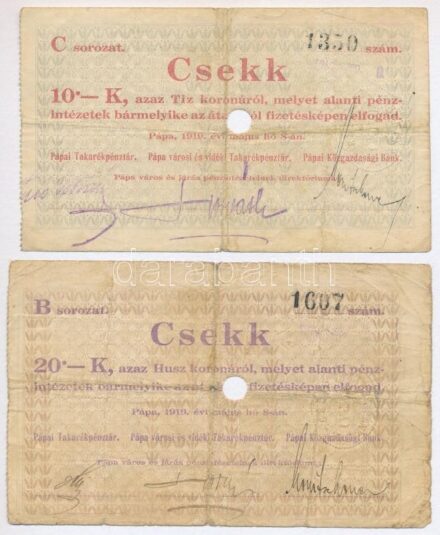 C sorozat. 1350 szám.
Csekk
10·— K, azaz Tiz koronáról, melyet alanti pénz-
intézetek bármelyike az fizetésképen elfogad.
Pápa, 1919. évi május hó 8-án.
Pápai Takarékpénztár. Pápa városi és vidéki Takarékpénztár. Pápai Közgazdasági Bank.
Pápa város és járás
darabanth
B sorozat. 1607 szám.
Csekk
20·— K, azaz Husz koronáról, melyet alanti pénz-
intézetek bármelyike fizetésképen elfogad.
Pápa, 1919. évi május hó 8-án.
Pápai Takarékpénztár. Pápa városi és vidéki Takarékpénztár. Pápai Közgazdasági Bank.
Pápa város és járás